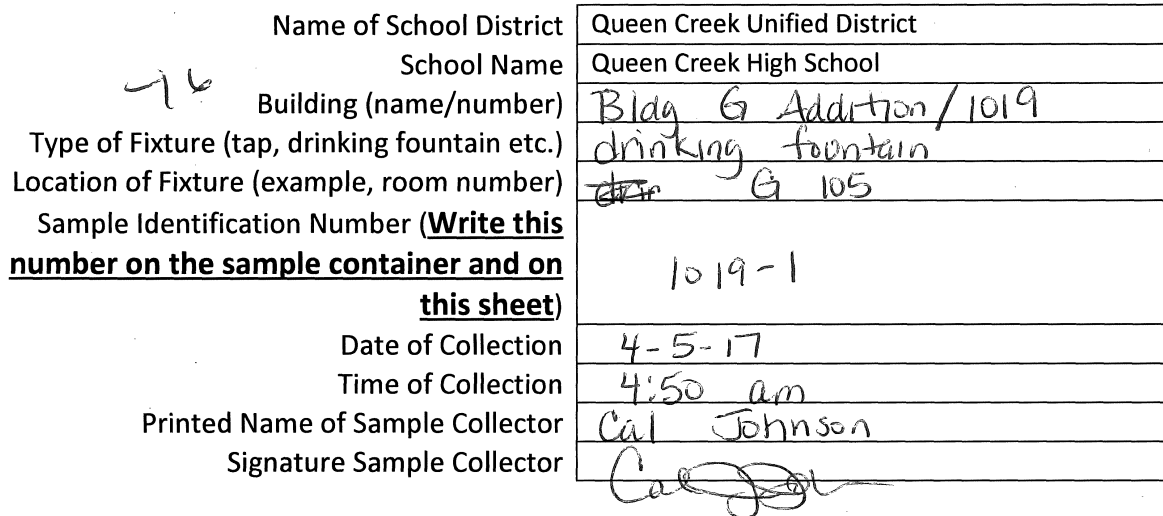 Name of School District Queen Creek Unified District
School Name Queen Creek High School
-16
Building (name/number) Bldg G Addition/1019
Type of Fixture (tap, drinking fountain etc.) drinking fountain
Location of Fixture (example, room number) G 105
Sample Identification Number (Write this
number on the sample container and on
this sheet) 1019-1
Date of Collection 4-5-17
Time of Collection 4:50 am
Printed Name of Sample Collector Cal Johnson
Signature Sample Collector